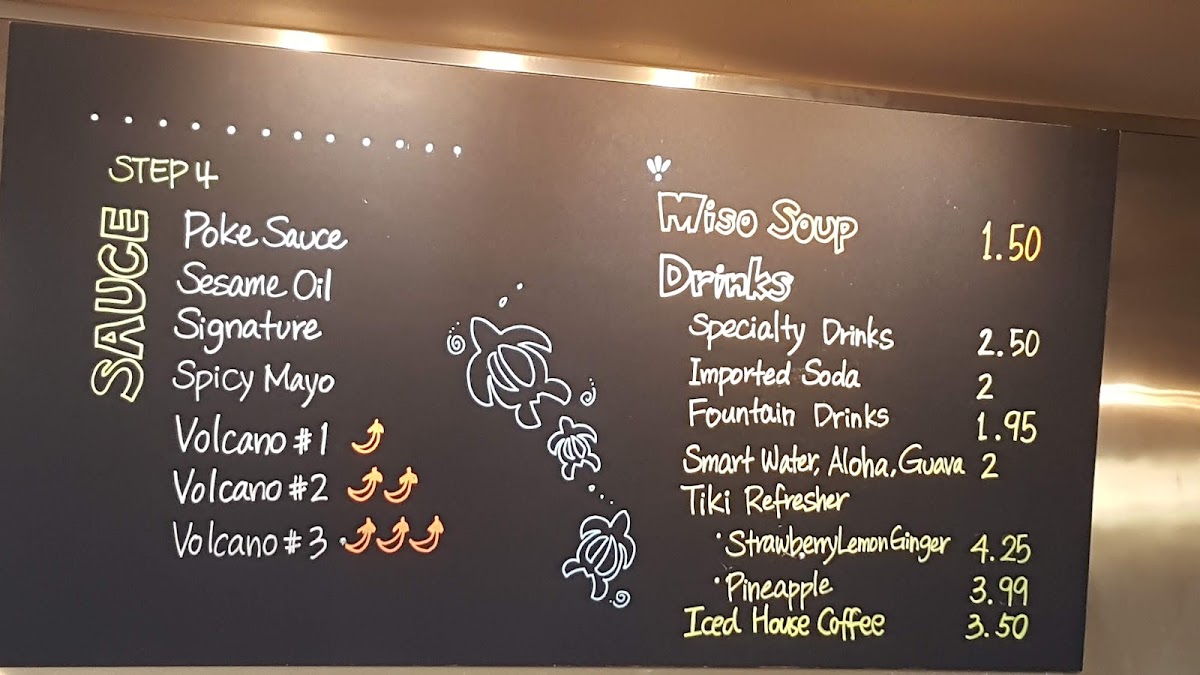 STEP 4
SAUCE
Poke Sauce
Sesame Oil
Signature
Spicy Mayo
Volcano #1
Volcano #2
Volcano #3
Miso Soup 1.50
Drinks
Specialty Drinks 2.50
Imported Soda 2
Fountain Drinks 1.95
Smart Water, Aloha, Guava 2
Tiki Refresher
· Strawberry Lemon Ginger 4.25
· Pineapple 3.99
Iced House Coffee 3.50